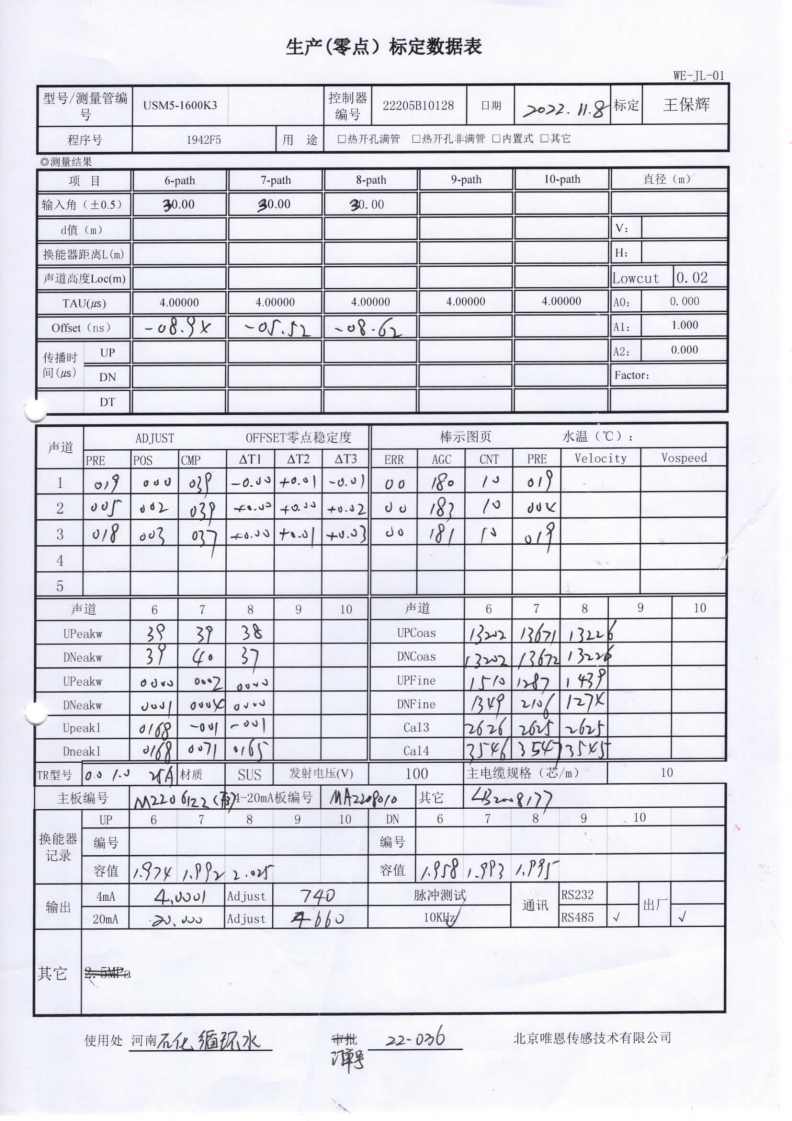 生产(零点) 标定数据表
WE-JL-01
型号/测量管编号 USM5-1600K3 控制器编号 22205B10128 日期 2022.11.8 标定 王保辉
程序号 1942F5 用 途 □热开孔满管 □热开孔非满管 □内置式 □其它
◎测量结果
项 目 6-path 7-path 8-path 9-path 10-path 直径（m）
输入角（±0.5） 30.00 30.00 30.00
d值（m） V:
换能器距离L(m) H:
声道高度Loc(m) Lowcut 0.02
TAU(μs) 4.00000 4.00000 4.00000 4.00000 4.00000 A0: 0.000
Offset（ns） -08.9X -05.52 -08.62 A1: 1.000
传播时间(μs) UP A2: 0.000
DN Factor:
DT
声道 ADJUST OFFSET零点稳定度 棒示图页 水温（℃）:
PRE POS CMP ΔT1 ΔT2 ΔT3 ERR AGC CNT PRE Velocity Vospeed
1 019 000 039 -0.00 +0.01 -0.01 00 180 10 019
2 005 002 039 +0.00 +0.00 +0.02 00 183 10 004
3 018 003 037 +0.00 +0.01 +0.03 00 181 10 019
4
5
声道 6 7 8 9 10 声道 6 7 8 9 10
UPeakw 39 39 38 UPCoas 13202 13671 13226
DNeakw 39 40 37 DNCoas 13202 13672 13226
UPeakw 0000 0002 0000 UPFine 1510 1287 1439
DNeakw 0001 0004 0000 DNFine 1349 2106 1274
Upeak1 0168 -001 -001 Cal3 2626 2625 2625
Dneak1 0168 0071 0165 Cal4 3546 3547 3545
TR型号 0.0 1.0 25A 材质 SUS 发射电压(V) 100 主电缆规格（芯/m） 10
主板编号 M2206122 4-20mA板编号 MA2208010 其它 LB2008177
换能器记录 UP 6 7 8 9 10 DN 6 7 8 9 10
编号 编号
容值 1.974 1.992 2.025 容值 1.958 1.993 1.995
输出 4mA 4.0001 Adjust 740 脉冲测试 通讯 RS232 出厂
20mA 20.000 Adjust 4660 10KHz√ RS485 √ √
其它 2.5MPa
使用处 河南石化循环水 审批 订单号 22-036 北京唯恩传感技术有限公司